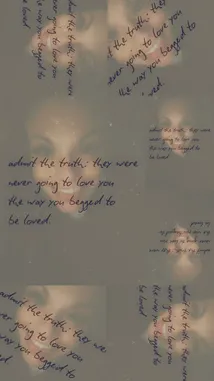 admit the truth: they were
never going to love you
the way you begged to
be loved.
admit the truth: they were
never going to love you
the way you begged to
be loved
admit the truth: they
never going to love you
the way you begged to
loved.
admit the truth: they were
never going to love you
the way you begged to
be loved
admit the truth: they were
never going to love you
the way you begged to
be loved
admit the truth: they we
never going to love you
the way you begged to
admit the truth: they were
never going to love you
the way you begged to
be loved